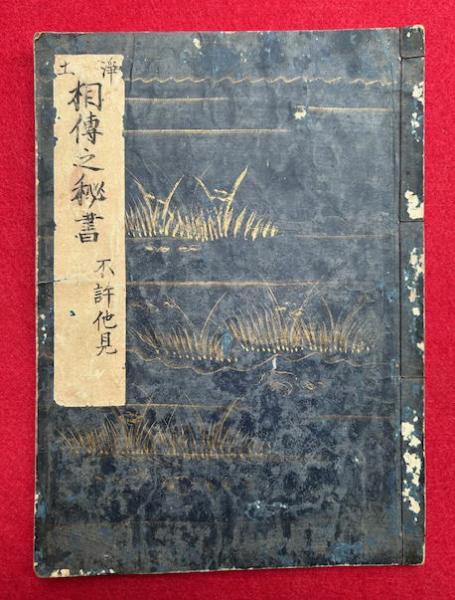 浄土
相傳之秘書
不許他見